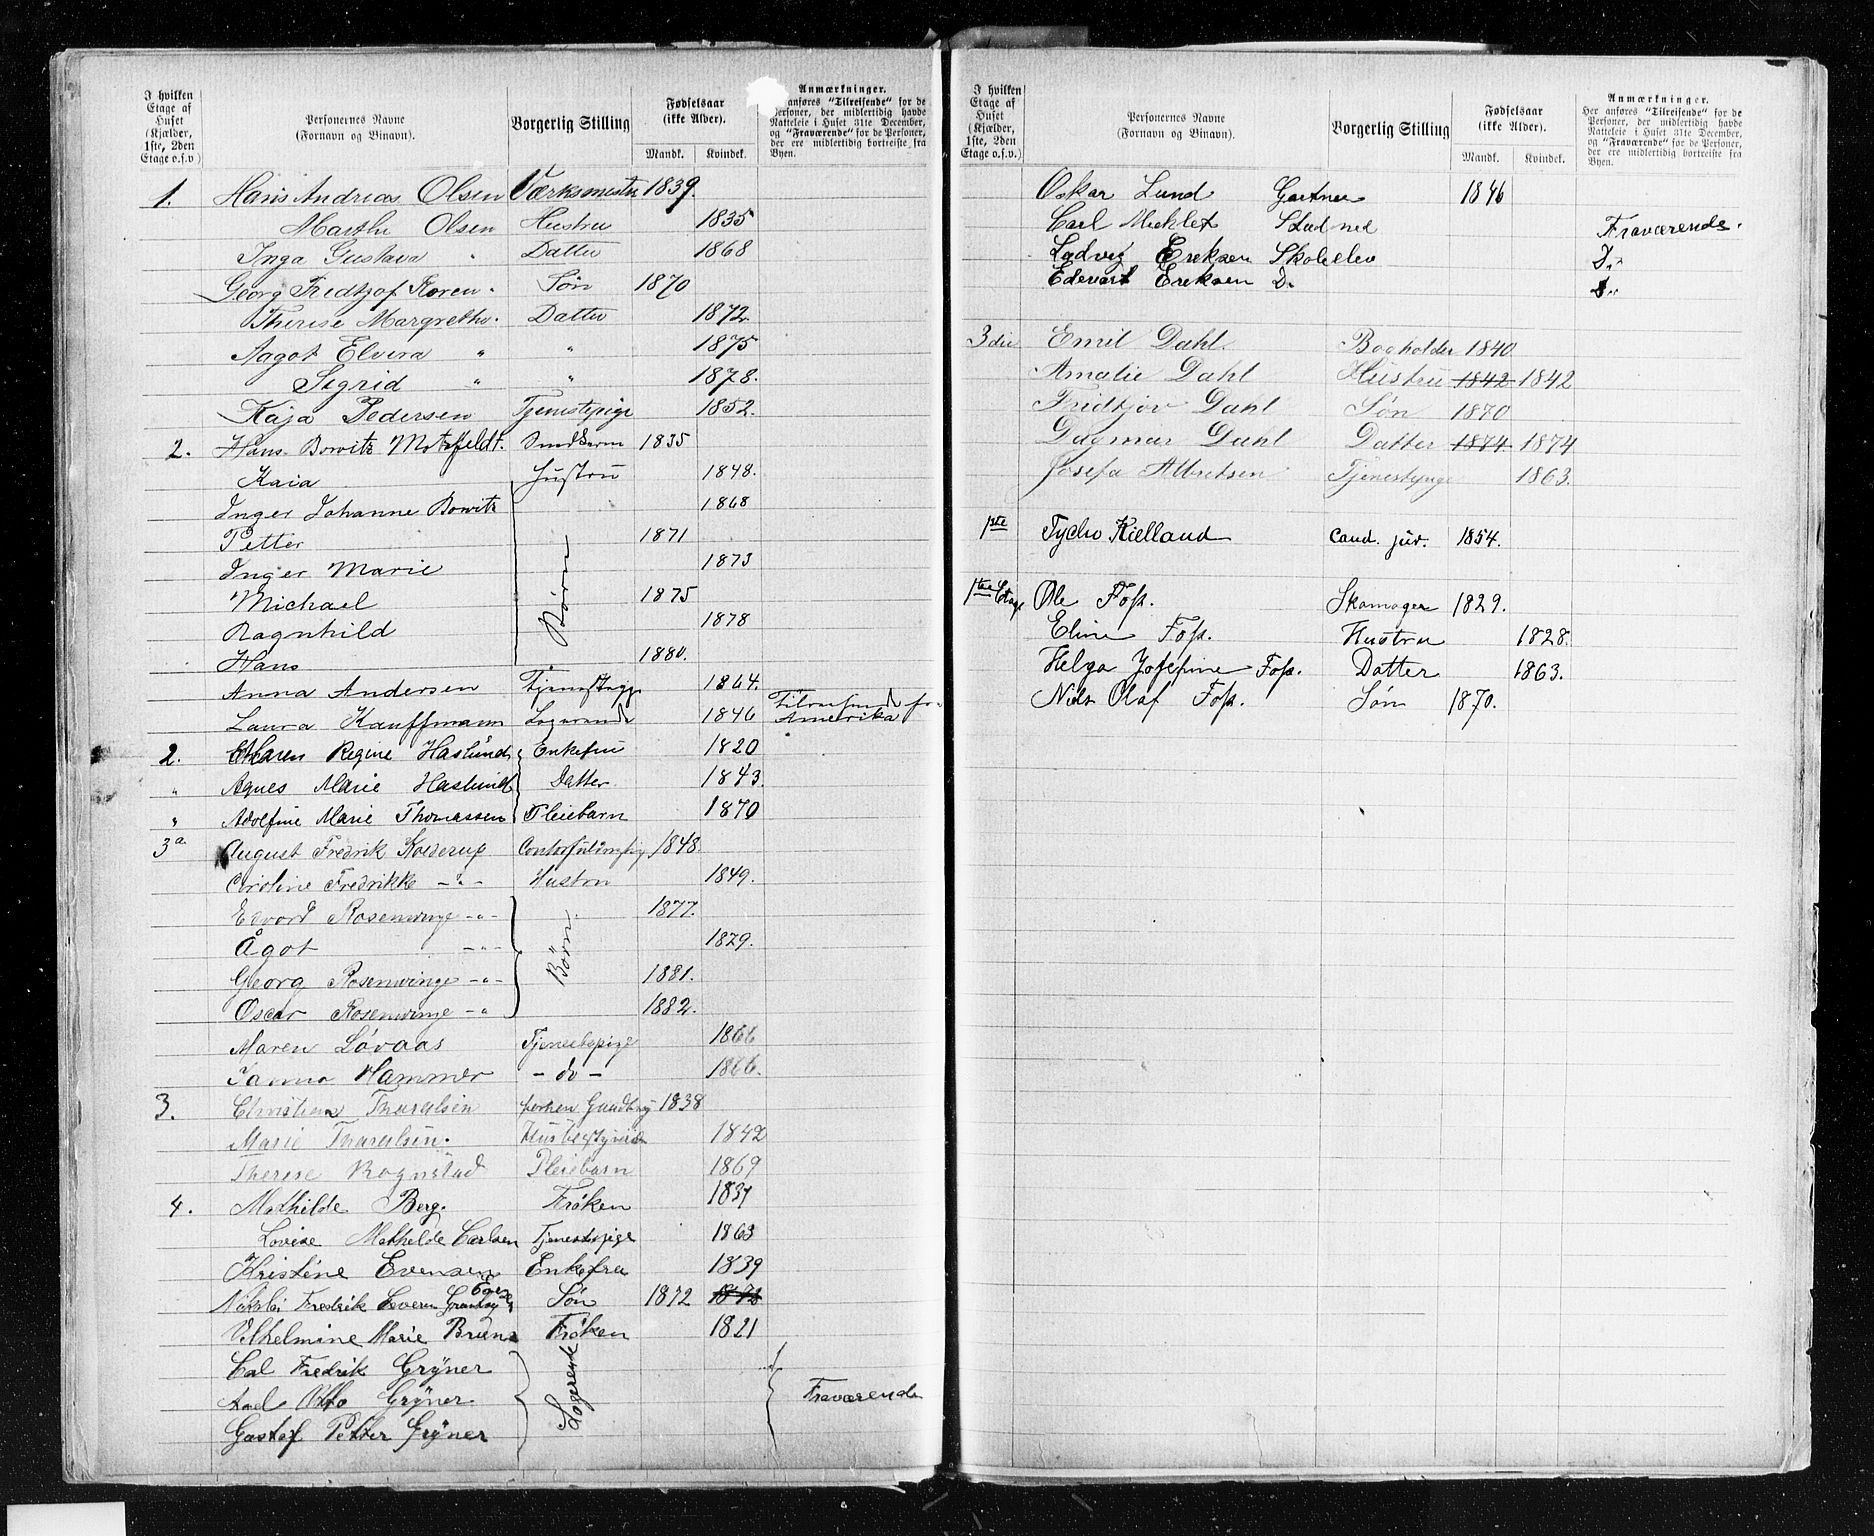 I hvilken Etage af Huset (Kjælder, 1ste, 2den Etage o.s.v)
Personernes Navne (Fornavn og Binavn).
Borgerlig Stilling
Fødselsaar (ikke Alder).
Mandk. Kvindek.
Anmærkninger.
anføres "Tilreisende" for de Personer, der midlertidig havde Natteleie i Huset 31te December, og "Fraværende" for de Personer, der ere midlertidig bortreiste fra Byen.
1. Hans Andreas Olsen Værksmester 1839.
Marthe Olsen Hustru 1835
Inga Gustava " Datter 1868
Georg Fridtjof Koren " Søn 1870
Therese Margrethe " Datter 1872.
Aagot Elvira " " 1875
Sigrid " " 1878.
Kaja Pedersen Tjenestepige 1852.
2. Hans Bowitz Motzfeldt. 1835
Kaia Hustru 1848.
Inger Johanne Bowitz 1868
Petter 1871
Inger Marie 1873
Michael 1875
Børn
Ragnhild 1878
Hans 1880.
Anna Andersen 1864.
Laura Kauffmann Logerende 1846 Tilreisende fr. Amerika
2. Karen Regine Haslund Enkefru 1820
" Agnes Marie Haslund Datter 1843.
" Adolfine Marie Thomassen Pleiebarn 1870
3a August Fredrik Kolderup 1848.
Caroline Fredrikke -"- Hustru 1849.
Edvard Rosenvinge -"- 1877.
Ågot -"- 1879.
Børn
Georg Rosenvinge -"- 1881.
Oscar Rosenvinge -" 1882.
Maren Lövaas Tjenestepige 1866
Hammer - do - 1866.
3. Christian Tharalsen 1838
Marie Tharalsen. Husbestyrerinde 1842
Therese Rognstad Pleiebarn 1869
4. Mathilde Berg. Frøken 1837
Lovise Mathilde Carlsen Tjenestepige 1863
Kristine Evensen Enkefru 1839
Nikolai Fredrik Severin Søn 1872 1872
Vilhelmine Marie Bruns Frøken 1821
Cal Fredrik Gryner
Axel Otto Gryner Logerende Fraværende
Gustaf Petter Gryner
I hvilken Etage af Huset (Kjælder, 1ste, 2den Etage o.s.v.)
Personernes Navne (Fornavn og Binavn).
Borgerlig Stilling
Fødselsaar (ikke Alder).
Mandk. Kvindek.
Anmærkninger.
Her anføres "Tilreisende" for de Personer, der midlertidig havde Natteleie i Huset 31te December, og "Fraværende" for de Personer, der ere midlertidig bortreiste fra Byen.
Oskar Lund Gartner 1846
Carl Michlet Stud med Fraværende.
Ludvig Eriksen Skoleelev D.
Edevart Eriksen D. D.
3die Emil Dahl. Bogholder 1840
Amalie Dahl Hustru 1842 1842
Fridtjov Dahl Søn 1870
Dagmar Dahl Datter 1874 1874
Josefa Albretsen Tjenestepige 1863.
1ste Tycho Kielland cand. jur. 1854.
1ste Etage Ole Foss. Skomager 1829.
Eline Foss. Hustru 1828.
Helga Josefine Foss. Datter 1863.
Nils Olaf Foss. Søn 1870.